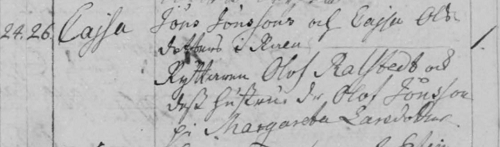 24. 26. Cajsa Jöns Jönssons och Cajsa Ols
dotters i Ruen 1.
Ryttaren Olof Ralstedt och
dess hustru dr. Olof Jönsson
pi Margareta Larsdotter